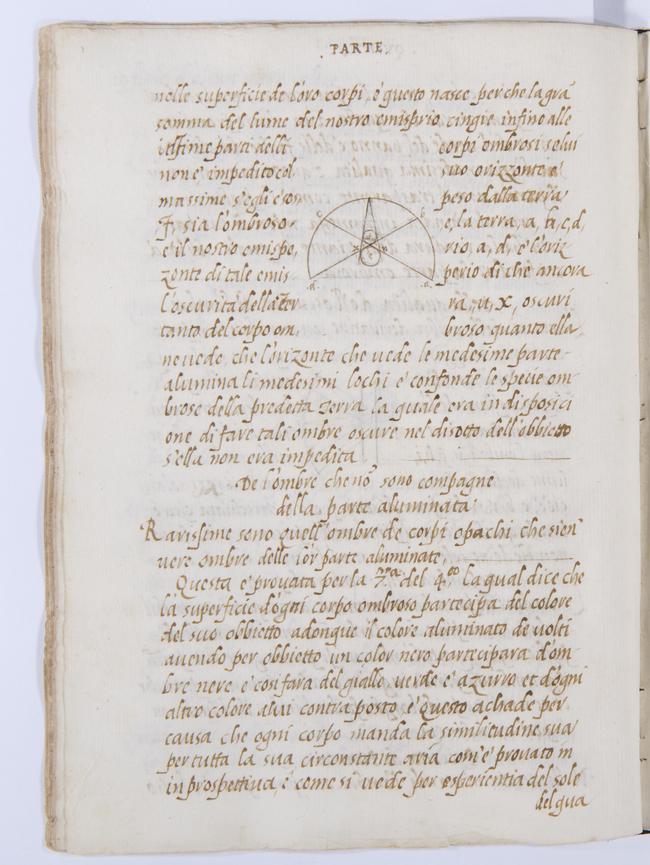 . PARTE .
nelle superficie de loro corpi, è questo nasce perche la grã
somma del lume del nostro emisperio cingie infino alle
infime parti delli corpi ombrosi se lui
non è impedito col suo orizzonte e
massime s'egli è sos peso dalla terra
sia l'ombroso e, la terra, a, b, c, d,
e il nostro emispe, rio, a, d, e l'oriz
zonte di tale emis perio di che ancora
l'oscurità della ter ra, n, x, oscuri
tanto del corpo om, broso quanto ella
ne vede, che l'orizonte che vede le medesime parte
alumina li medesimi lochi e confonde le specie om
brose della predetta terra la quale era in disposici
one di fare tali ombre oscure nel disotto dell'obbietto
s'ella non era impedita
De l'ombre che nõ sono compagne
della parte aluminata
Rarissime sono quell'ombre de corpi opachi che sien
vere ombre delle lor parte aluminate,
Questa e provata per la 7.ma del 4.to la qual dice che
la superficie d'ogni corpo ombroso partecipa del colore
del suo obbietto adonque il colore aluminato de volti
avendo per obbietto un color nero partecipara d'om
bre nere, e cosi fara del giallo verde e azurro et d'ogni
altro colore a lui contra posto, e questo achade per
causa che ogni corpo manda la similitudine sua
per tutta la sua circonstante aria com'è provato in
in prospettiva, e come si vede per esperientia del sole
del qua